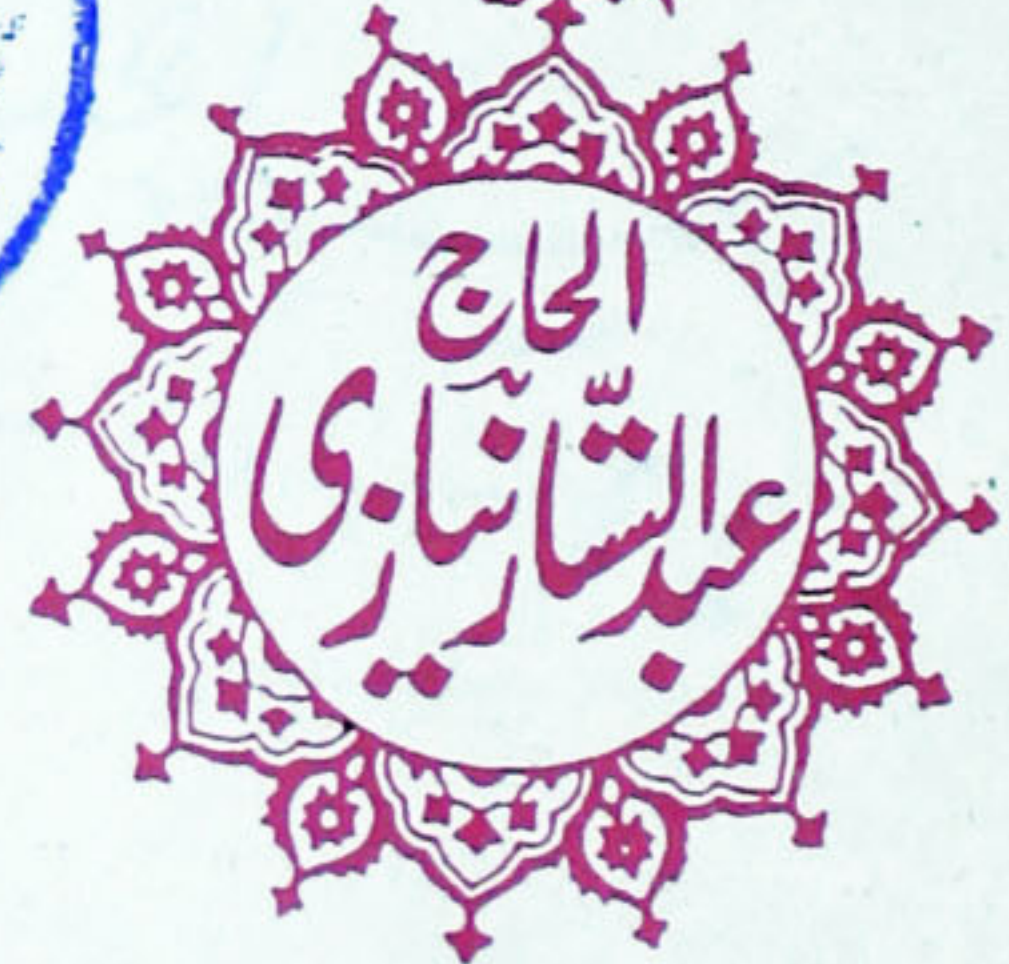 الحاج
عبدالستّار نیازی